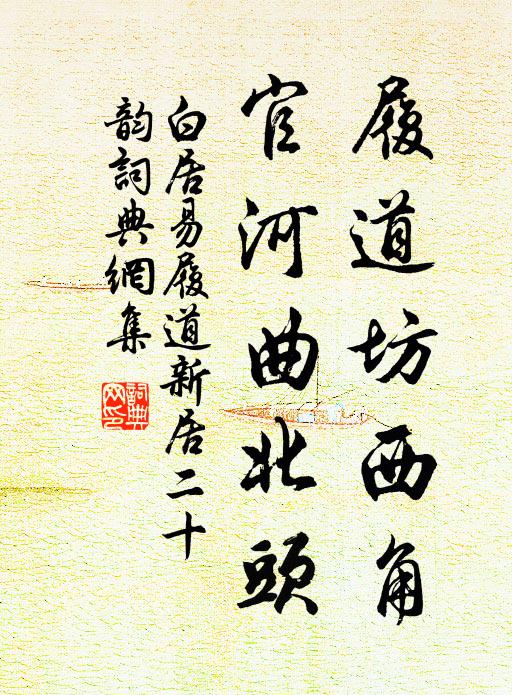 履道坊西角
官河曲北頭
白居易履道新居二十
韵詞典網集
詞典网印